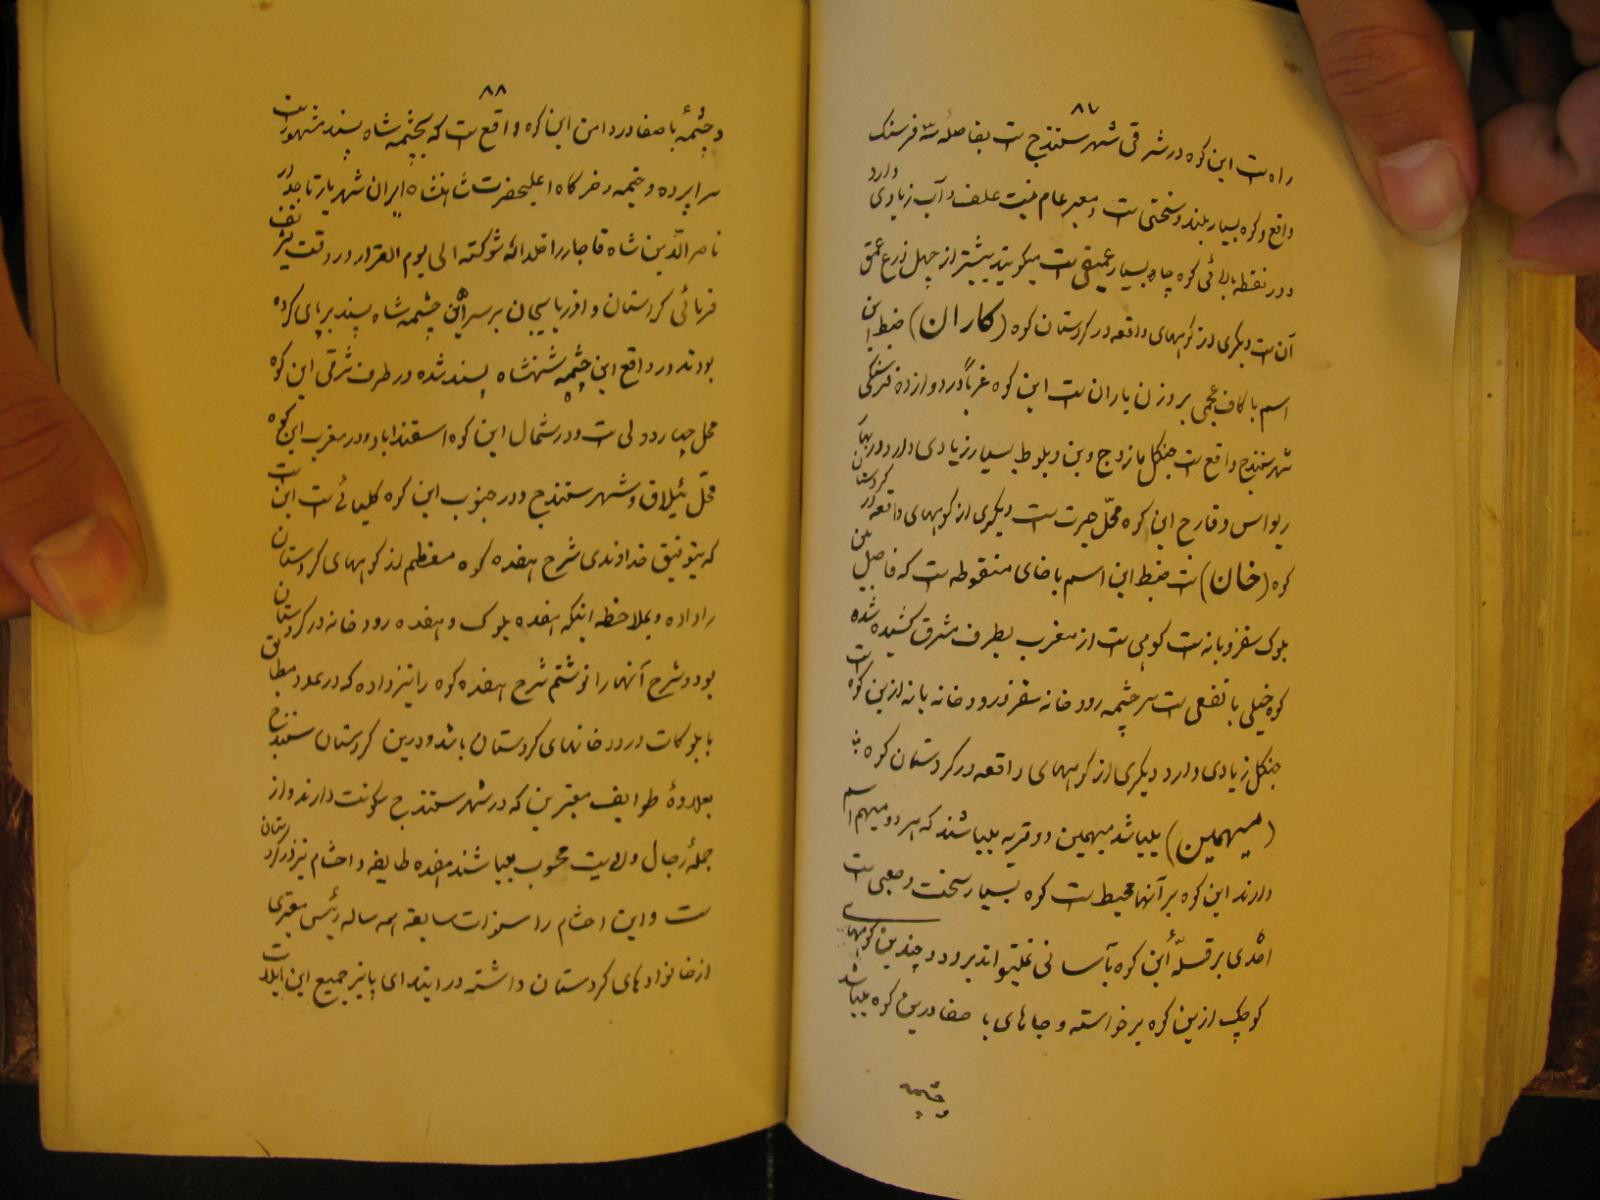 ۸۷
راه است این کوه در شرقی شهر سنندج است بفاصلهٔ سه فرسنگ
واقع و کوه بسیار بلند و سختی است و معبر عام نیست علف و آب زیادی دارد
و در نقطه بالائی کوه چاه بسیار عمیقی است میگویند بیشتر از چهل ذرع عمق
آن است دیگری از کوههای واقعه در کردستان کوه (کاران) ضبط این
اسم با کاف عجمی بر وزن باران است این کوه غرباً در دوازده فرسنگی
شهر سنندج واقع است جنگل مازوج و بن و بلوط بسیار زیادی دارد در بهار
ریواس و قارچ این کوه محل حیرت است دیگری از کوههای واقعه در کردستان
کوه (خان) است ضبط این اسم با خای منقوطه است که فاصل بین
بلوک سقز و بانه است کوهی است از مغرب بطرف مشرق کشیده شده
کوه خیلی با نفعی است سرچشمه رودخانه سقز و رودخانه بانه ازین کوه است
جنگل زیادی دارد دیگری از کوههای واقعه در کردستان کوه
(میهمین) میباشد میهمین دو قریه میباشند که هر دو میهم اسم
دارند این کوه بر آنها محیط است کوه بسیار سخت و صعبی است
احدی بر قلهٔ این کوه بآسانی نمیتواند برود و چندین کوههای
کوچک ازین کوه برخواسته و جاهای با صفا درین کوه میباشد
و چشمه
۸۸
و چشمهٔ با صفا در دامن این کوه واقع است که بچشمه شاه پسند مشهور است
سراپرده و خیمه و خرگاه اعلیحضرت شاهنشاه ایران شهریار تاجدار
ناصر الدین شاه قاجار خلد الله شوکته الی یوم القرار در وقت تشریف
فرمائی کردستان و آذربایجان بر سر این چشمه شاه پسند برپای کرده
بودند در واقع این چشمه شهنشاه پسند شده در طرف شرقی این کوه
محل چهاردولی است و در شمال این کوه اسفندآباد و در مغرب این کوه
محل ئیلاق و شهر سنندج و در جنوب این کوه کلیائی است این است
که بتوفیق خداوندی شرح هفده کوه معظم از کوههای کردستان
را داده و بملاحظه اینکه هفده بلوک و هفده رودخانه در کردستان
بود و شرح آنها را نوشتم شرح هفده کوه را نیز داده که در عدد مطابق
با بلوکات و رودخانهای کردستان باشد و درین کردستان سنندج
بعلاوهٔ طوایف معتبرین که در شهر سنندج سکونت دارند و از
جملهٔ رجال ولایت محسوب میباشند هفده طایفه و احشام نیز در کردستان
است و این احشام را سنوات سابقه همه ساله رئیس معتبری
از خانوادهای کردستان داشته در ابتدای پائیز جمیع این ایلات